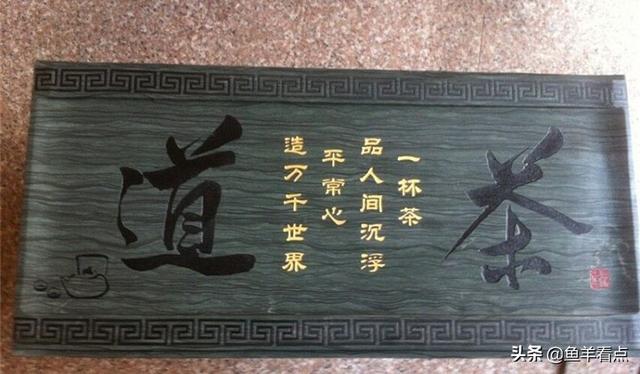 茶
一杯茶
品人间沉浮
平常心
造万千世界
道
头条 @鱼羊看点